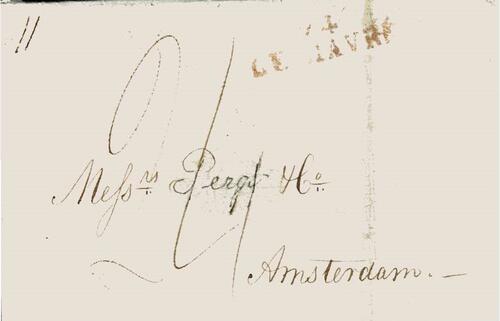 11
LE HAVRE
24
Messrs Perg & Co
Amsterdam.